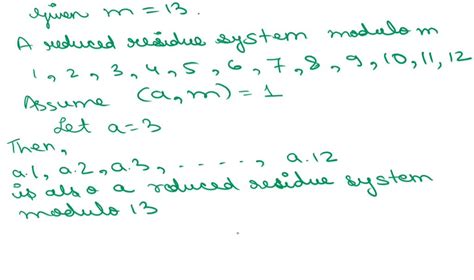 given m = 13.
A reduced residue system modulo m
1, 2, 3, 4, 5, 6, 7, 8, 9, 10, 11, 12
Assume (a, m) = 1
Let a = 3
Then,
a.1, a.2, a.3, ......, a.12
is also a reduced residue system
modulo 13